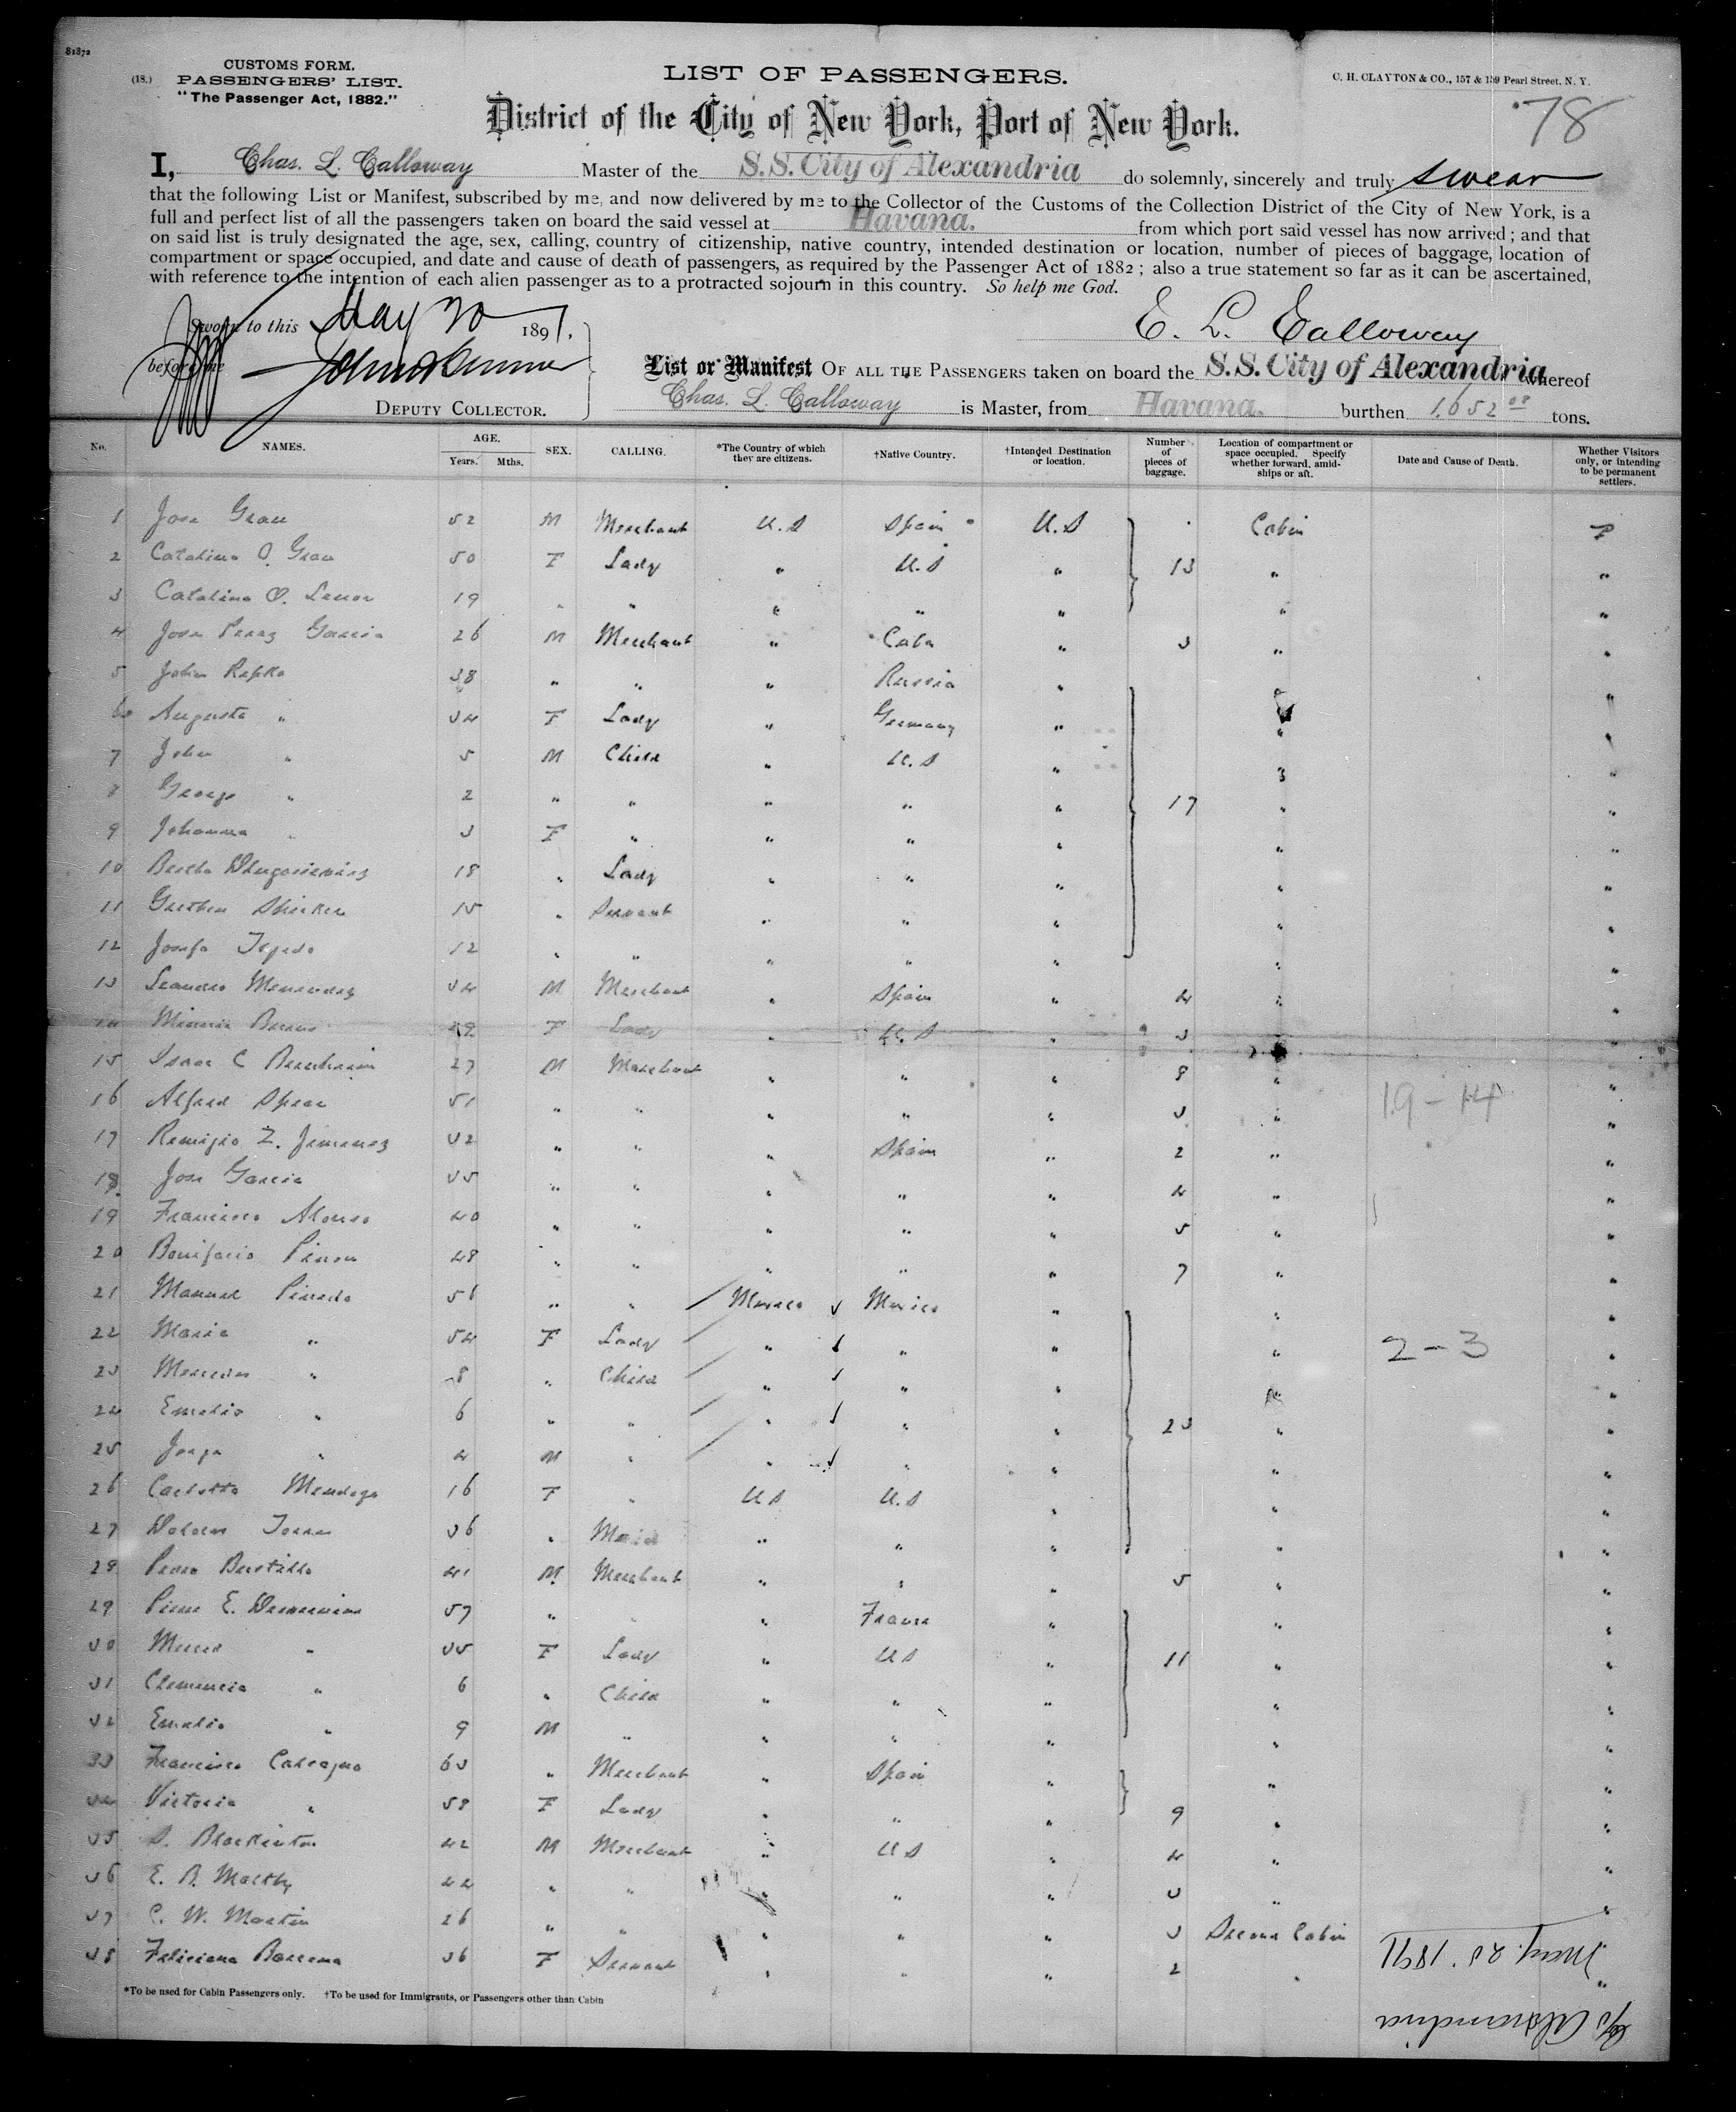 81872
CUSTOMS FORM.
(18.) PASSENGERS' LIST.
"The Passenger Act, 1882."
LIST OF PASSENGERS.
C. H. CLAYTON & CO., 157 & 159 Pearl Street, N. Y.
78
District of the City of New York, Port of New York.
I, Chas. L. Calloway Master of the S.S. City of Alexandria do solemnly, sincerely and truly swear
that the following List or Manifest, subscribed by me, and now delivered by me to the Collector of the Customs of the Collection District of the City of New York, is a
full and perfect list of all the passengers taken on board the said vessel at Havana. from which port said vessel has now arrived; and that
on said list is truly designated the age, sex, calling, country of citizenship, native country, intended destination or location, number of pieces of baggage, location of
compartment or space occupied, and date and cause of death of passengers, as required by the Passenger Act of 1882; also a true statement so far as it can be ascertained,
with reference to the intention of each alien passenger as to a protracted sojourn in this country. So help me God.
Sworn to this May 20 1891.
before me
C. L. Calloway
DEPUTY COLLECTOR.
List or Manifest OF ALL THE PASSENGERS taken on board the S.S. City of Alexandria whereof
Chas. L. Calloway is Master, from Havana. burthen 1.652 08 tons.
No. NAMES. AGE. Years. Mths. SEX. CALLING. *The Country of which they are citizens. †Native Country. †Intended Destination or location. Number of pieces of baggage. Location of compartment or space occupied. Specify whether forward, amidships or aft. Date and Cause of Death. Whether Visitors only, or intending to be permanent settlers.
1 Jose Grau 52 M Merchant U.S Spain U.S Cabin P
2 Catalina O. Grau 50 F Lady " U.S " 13 " "
3 Catalina O. 19 " " " " " " "
4 Jose Perez Garcia 26 M Merchant " Cuba " 3 " "
5 John Repko 38 " " " Russia " "
6 Augusta " 34 F Lady " Germany " " "
7 John " 5 M Child " U.S " "
8 George " 2 " " " " " 17 " "
9 Johanna " 3 F " " " " " "
10 Bertha 18 " Lady " " " " "
11 Gretchen 15 " Servant " " " " "
12 Josefa Tejedo 12 " " " " " " "
13 Leandro Menendez 34 M Merchant " Spain " 4 " "
14 Minnie 29 F Lady " U.S " 3 "
15 Isaac C 27 M Merchant " " " 8 " "
16 Alfred Spear 51 " " " " " 3 " "
19-14
17 Remigio Z. Jimenez 32 " " " Spain " 2 " "
18 Jose Garcia 35 " " " " " 4 " "
19 Francisco Alonso 40 " " " " " 5 " "
20 Bonifacio 48 " " " " " 7 " "
21 Manuel Pineda 56 " " Mexico Mexico " " "
22 Maria " 54 F Lady " " " " "
2-3
23 Mercedes " 8 " Child " " " "
24 Emelio " 6 " " " " " 23 " "
25 Jorge " 4 M " " " " " "
26 Carlotta Mendoza 16 F " U S U.S " " "
27 Dolores Torres 36 " Maid " " " " "
28 Pedro Bustillo 41 M Merchant " " " 5 " "
29 Pierre E. 57 " " " France " " "
30 " 35 F Lady " U S " 11 " "
31 Clemencia " 6 " Child " " " " "
32 Emelio " 9 M " " " " " "
33 Francisco 63 " Merchant " Spain " " "
34 Victoria " 58 F Lady " " " 9 " "
35 S. Blackinton 42 M Merchant " U S " 4 " "
36 E. B. Maltby 44 " " " " " 3 " "
37 C. W. Martin 26 " " " " " 3 Second Cabin
38 Feliciana Barcena 36 F Servant " " " 2 " "
*To be used for Cabin Passengers only. †To be used for Immigrants, or Passengers other than Cabin
May. 20. 1891
Alexandria